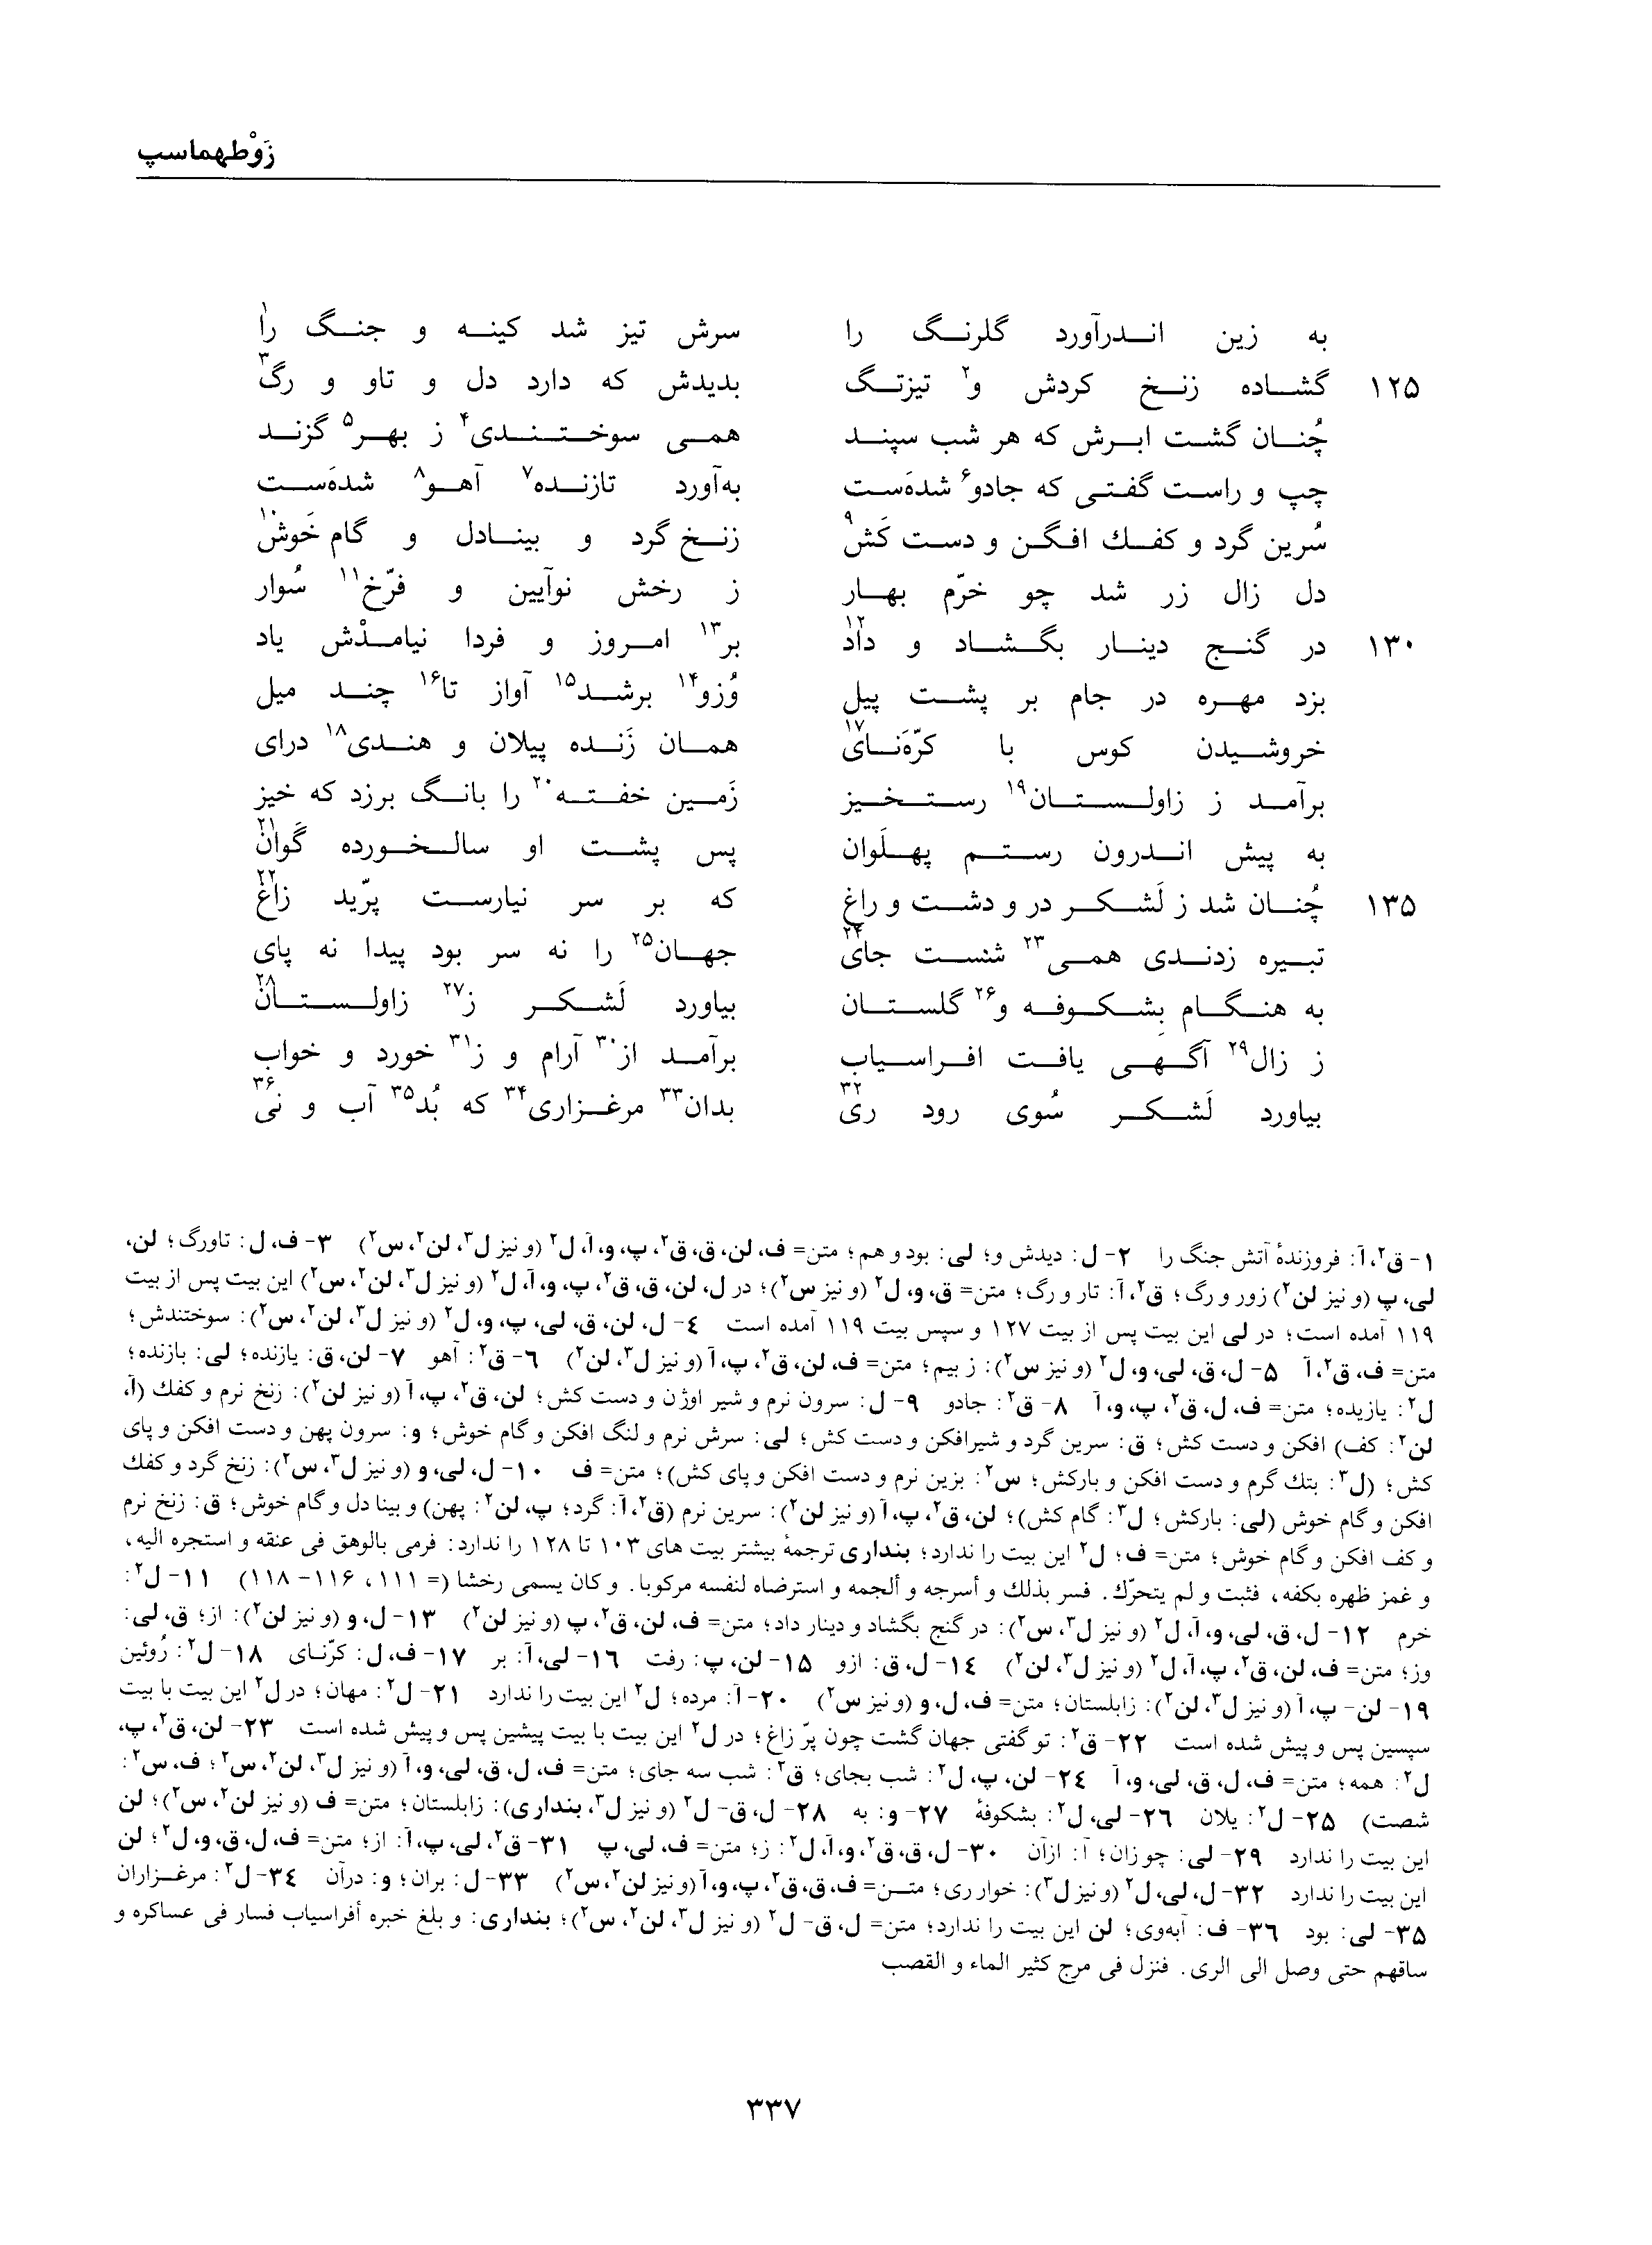 زَوْطهماسپ
به زین اندرآورد گلرنگ را سرش تیز شد کینه و جنگ را۱
۱۲۵ گشاده زنخ کردش و۲ تیزتگ بدیدش که دارد دل و تاو و رگ۳
چُنان گشت ابرش که هر شب سپند همی سوختندی۴ ز بهر۵ گزند
چپ و راست گفتی که جادو۶ شده‌ست به‌آورد تازنده۷ آهو۸ شده‌ست
سُرین گرد و کفك افگن و دست کَش۹ زنخ گرد و بینادل و گام خَوش۱۰
دل زال زر شد چو خرّم بهار ز رخش نوآیین و فرّخ۱۱ سُوار
۱۳۰ در گنج دینار بگشاد و داد۱۲ بر۱۳ امروز و فردا نیامذْش یاد
بزد مهره در جام بر پشت پیل وُزو۱۴ برشد۱۵ آواز تا۱۶ چند میل
خروشیدن کوس با کرّه‌نَای۱۷ همان ژَنده پیلان و هندی۱۸ درای
برآمد ز زاولستان۱۹ رستخیز زَمین خفته۲۰ را بانگ برزد که خیز
به پیش اندرون رستم پهلَوان پس پشت او سالخورده گَوان۲۱
۱۳۵ چُنان شد ز لَشکر در و دشت و راغ که بر سر نیارست پرّید زاغ۲۲
تبیره زدندی همی۲۳ شَست جای۲۴ جهان۲۵ را نه سر بود پیدا نه پای
به هنگام بِشکوفه و۲۶ گلستان بیاورد لَشکر ز۲۷ زاولستان۲۸
ز زال۲۹ آگهی یافت افراسیاب برآمد از۳۰ آرام و ز۳۱ خورد و خواب
بیاورد لَشکر سُوی رود ری۳۲ بدان۳۳ مرغزاری۳۴ که بُد۳۵ آب و نی۳۶
۱- ق۲، آ: فروزندهٔ آتش جنگ را ۲- ل: دیدش و؛ لی: بود و هم؛ متن= ف، لن، ق، ق۲، پ، و، آ، ل۲ (و نیز ل۳، لن۲، س۲) ۳- ف، ل: تاورگ؛ لن،
لی، پ (و نیز لن۲) زور و رگ؛ ق۲، آ: تار و رگ؛ متن= ق، و، ل۲ (و نیز س۲)؛ در ل، لن، ق، ق۲، پ، و، آ، ل۲ (و نیز ل۳، لن۲، س۲) این بیت پس از بیت
۱۱۹ آمده است؛ در لی این بیت پس از بیت ۱۲۷ و سپس بیت ۱۱۹ آمده است ۴- ل، لن، ق، لی، پ، و، ل۲ (و نیز ل۳، لن۲، س۲): سوختندش؛
متن= ف، ق۲، آ ۵- ل، ق، لی، و، ل۲ (و نیز س۲): ز بیم؛ متن= ف، لن، ق۲، پ، آ (و نیز ل۳، لن۲) ۶- ق۲: آهو ۷- لن، ق: یازنده؛ لی: بازنده؛
ل۲: یازیده؛ متن= ف، ل، ق۲، پ، و، آ ۸- ق۲: جادو ۹- ل: سرون نرم و شیر اوژن و دست کش؛ لن، ق۲، پ، آ (و نیز لن۲): زنخ نرم و کفك (آ،
لن۲: کف) افکن و دست کش؛ ق: سرین گرد و شیرافکن و دست کش؛ لی: سرش نرم و لنگ افکن و گام خوش؛ و: سرون پهن و دست افکن و پای
کش؛ (ل۳: بتك گرم و دست افکن و بارکش؛ س۲: بزین نرم و دست افکن و پای کش)؛ متن= ف ۱۰- ل، لی، و (و نیز ل۳، س۲): زنخ گرد و کفك
افکن و گام خوش (لی: بارکش؛ ل۳: گام کش)؛ لن، ق۲، پ، آ (و نیز لن۲): سرین نرم (ق۲، آ: گرد؛ پ، لن۲: پهن) و بینا دل و گام خوش؛ ق: زنخ نرم
و کف افکن و گام خوش؛ متن= ف؛ ل۲ این بیت را ندارد؛ بنداری ترجمهٔ بیشتر بیت های ۱۰۳ تا ۱۲۸ را ندارد: فرمی بالوهق فی عنقه و استجره الیه،
و غمز ظهره بکفه، فثبت و لم یتحرّك. فسر بذلك و أسرجه و ألجمه و استرضاه لنفسه مرکوبا. و کان یسمی رخشا (= ۱۱۱، ۱۱۶- ۱۱۸) ۱۱- ل۲:
خرم ۱۲- ل، ق، لی، و، آ، ل۲ (و نیز ل۳، س۲): در گنج بگشاد و دینار داد؛ متن= ف، لن، ق۲، پ (و نیز لن۲) ۱۳- ل، و (و نیز لن۲): از؛ ق، لی:
وز؛ متن= ف، لن، ق۲، پ، آ، ل۲ (و نیز ل۳، لن۲) ۱۴- ل، ق: ازو ۱۵- لن، پ: رفت ۱۶- لی، آ: بر ۱۷- ف، ل: کرّنای ۱۸- ل۲: رُوئین
۱۹- لن- پ، آ (و نیز ل۳، لن۲): زابلستان؛ متن= ف، ل، و (و نیز س۲) ۲۰- آ: مرده؛ ل۲ این بیت را ندارد ۲۱- ل۲: مهان؛ در ل۲ این بیت با بیت
سپسین پس و پیش شده است ۲۲- ق۲: تو گفتی جهان گشت چون پرّ زاغ؛ در ل۲ این بیت با بیت پیشین پس و پیش شده است ۲۳- لن، ق۲، پ،
ل۲: همه؛ متن= ف، ل، ق، لی، و، آ ۲۴- لن، پ، ل۲: شب بجای؛ ق۲: شب سه جای؛ متن= ف، ل، ق، لی، و، آ (و نیز ل۳، لن۲، س۲؛ ف، س۲:
شصت) ۲۵- ل۲: یلان ۲۶- لی، ل۲: بشکوفهٔ ۲۷- و: به ۲۸- ل، ق- ل۲ (و نیز ل۳، بنداری): زابلستان؛ متن= ف (و نیز لن۲، س۲)؛ لن
این بیت را ندارد ۲۹- لی: چو زان؛ آ: ازآن ۳۰- ل، ق، ق۲، و، آ، ل۲: ز؛ متن= ف، لی، پ ۳۱- ق۲، لی، پ، آ: از؛ متن= ف، ل، ق، و، ل۲؛ لن
این بیت را ندارد ۳۲- ل، لی، ل۲ (و نیز ل۳): خوار ری؛ متن= ف، ق، ق۲، پ، و، آ (و نیز لن۲، س۲) ۳۳- ل: بران؛ و: درآن ۳۴- ل۲: مرغزاران
۳۵- لی: بود ۳۶- ف: آبه‌وی؛ لن این بیت را ندارد؛ متن= ل، ق- ل۲ (و نیز ل۳، لن۲، س۲)؛ بنداری: و بلغ خبره أفراسیاب فسار فی عساکره و
ساقهم حتی وصل الی الری. فنزل فی مرج کثیر الماء و القصب
۳۳۷